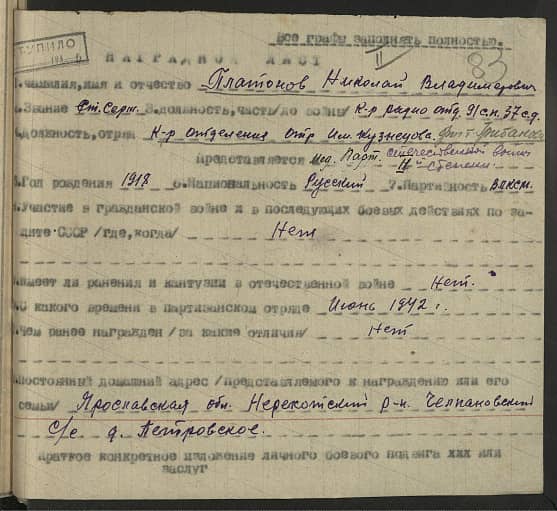 Все графы заполнять полностью.
II
НАГРАДНО ЛИСТ 83
1.Фамилия,имя и отчество Платонов Николай Владимирович
2.Звание Ст. Серж. 3.должность,часть/до войны/ К-р радио отд. 91 с.п. 37 с.д.
4.Должность,отряд К-р отделения отр. им. Кузнецова.
Представляется Мед. Парт. отечественной войны
II й степени.
5.Год рождения 1918 6.Национальность Русский 7.Партийность ВЛКСМ.
8.Участие в гражданской войне и в последующих боевых действиях по за-
щите СССР /где,когда/ Нет
9.Имеет ли ранения и контузии в отечественной войне Нет.
С какого времени в партизанском отряде Июнь 1942 г.
Чем ранее награжден /за какие отличия/ Нет
Постоянный домашний адрес /представляемого к награждению или его
семьи/ Ярославская обл. Нерехтский р-н. Челпановский
С/с д. Петровское.
Краткое конкретное изложение личного боевого подвига ххх или
заслуг